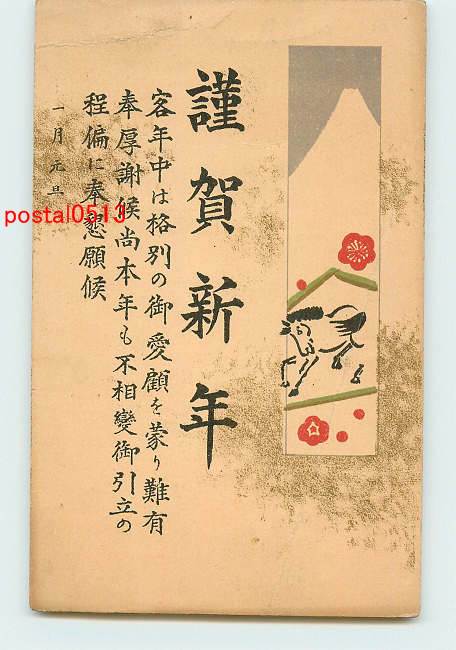 謹賀新年
客年中は格別の御愛顧を蒙り難有
奉厚謝候尚本年も不相變御引立の
程偏に奉懇願候
一月元旦
postal0513